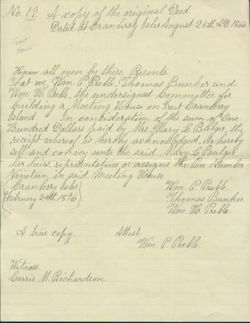 No. 19. A copy of the original Deed
Dated at Cranberry Isles August 25th A.D. 1866
Know all men by these Presents
That we, Wm. P. Preble, Thomas Bunker and
Wm. H. Preble, the undersigned Committee for
building a Meeting House on Great Cranberry
Island. In consideration of the sum of One
Hundred Dollars paid by Mrs. Mary E. Bulger, the
receipt whereof is hereby acknowledged, do hereby
sell and convey unto the said Mary E. Bulger
her heirs, representatives or assigns the Pew Number
Nineteen, in said Meeting House.
Cranberry Isles
Wm. P. Preble.
February 24th 1896
Thomas Bunker
Wm. H. Preble
A true copy. Attest
Wm. P. Preble.
Witness
Carrie M. Richardson